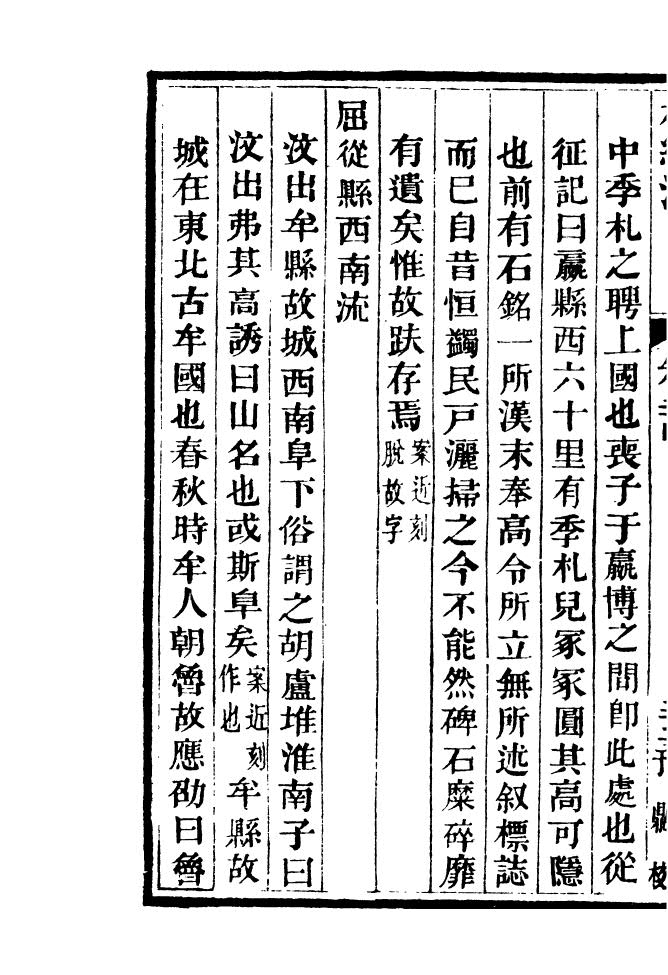 中季札之聘上國也喪子于嬴博之間卽此處也從
征記曰嬴縣西六十里有季札兒冢冢圓其高可隱
也前有石銘一所漢末奉高令所立無所述叙標誌
而已自昔恒蠲民戶灑掃之今不能然碑石糜碎靡
有遺矣惟故趺存焉案近刻
脫故字
屈從縣西南流
汶出牟縣故城西南阜下俗謂之胡盧堆淮南子曰
汶出弗其高誘曰山名也或斯阜矣案近刻
作也牟縣故
城在東北古牟國也春秋時牟人朝魯故應劭曰魯